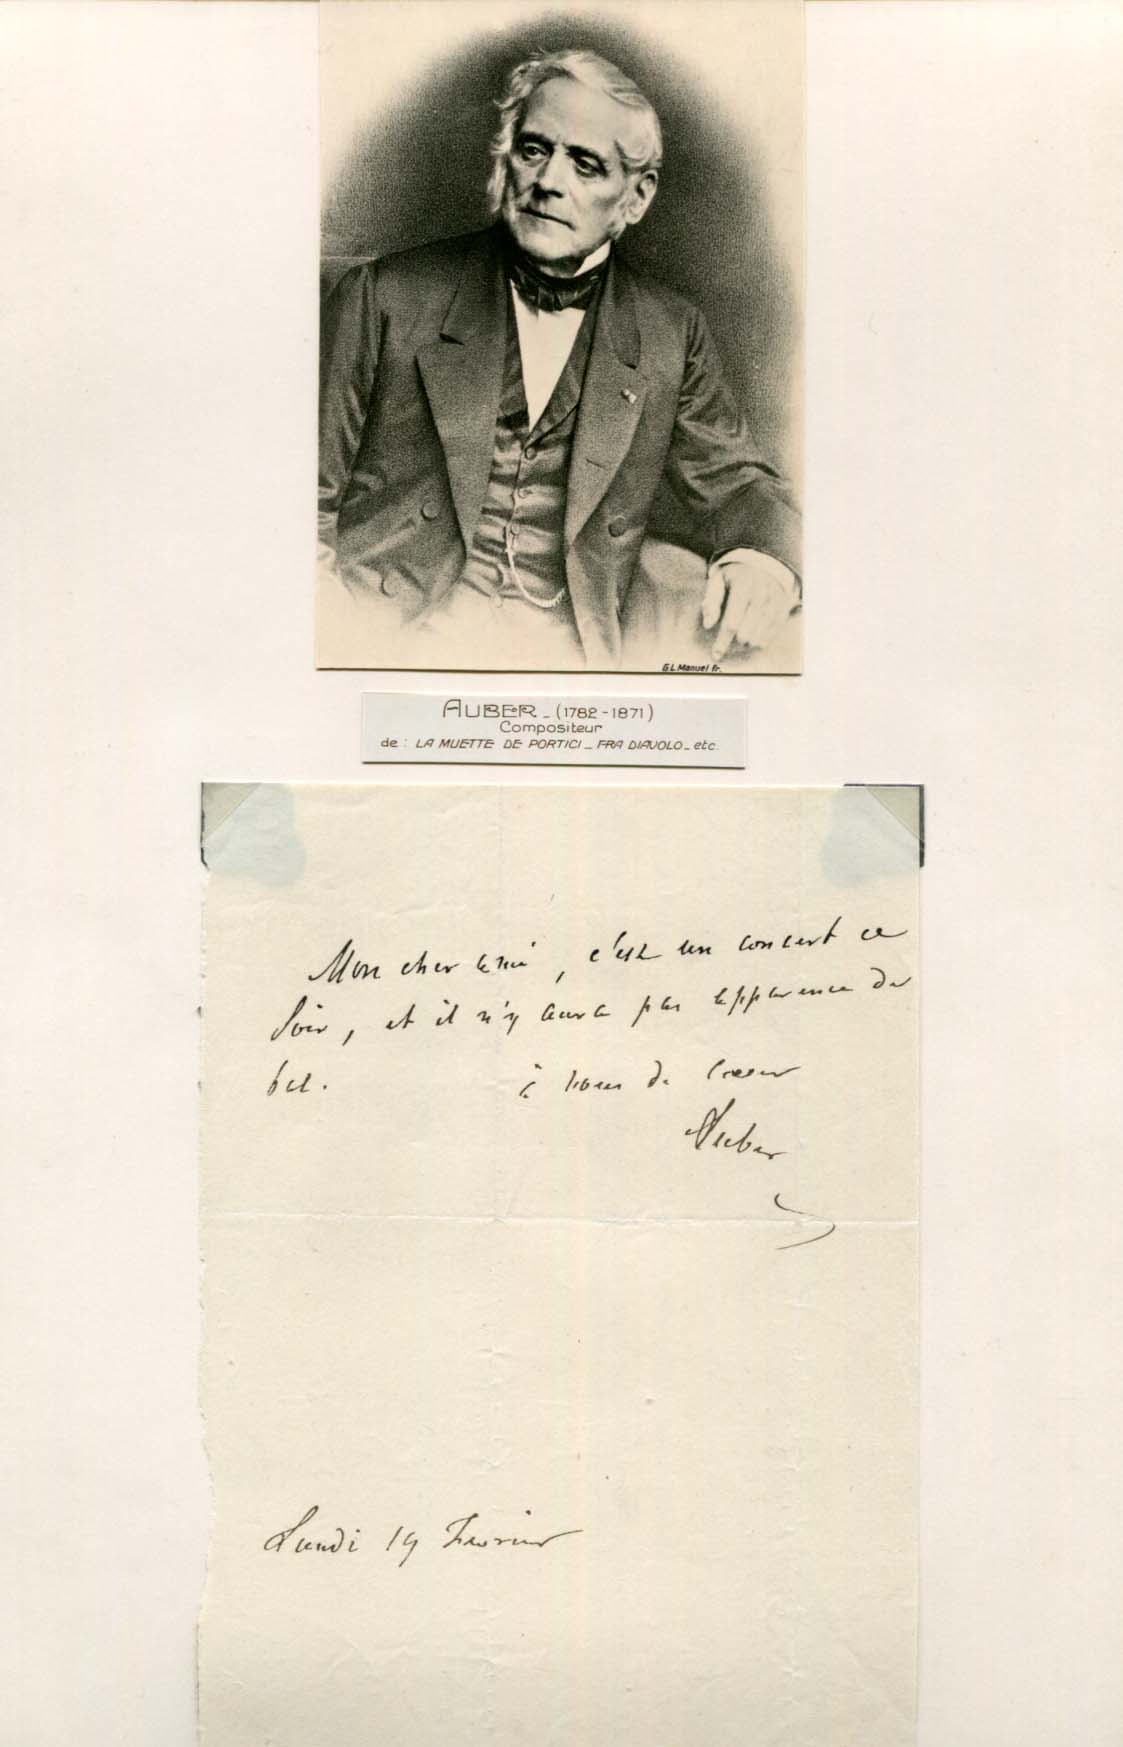 G.L. Manuel Fr.
AUBER _ (1782-1871)
Compositeur
de : LA MUETTE DE PORTICI _ FRA DIAVOLO _ etc.
Mon cher ami, c'est un concert ce
soir, et il n'y aura pas apparence de
bal. à vous de coeur
Auber
Lundi 19 Février